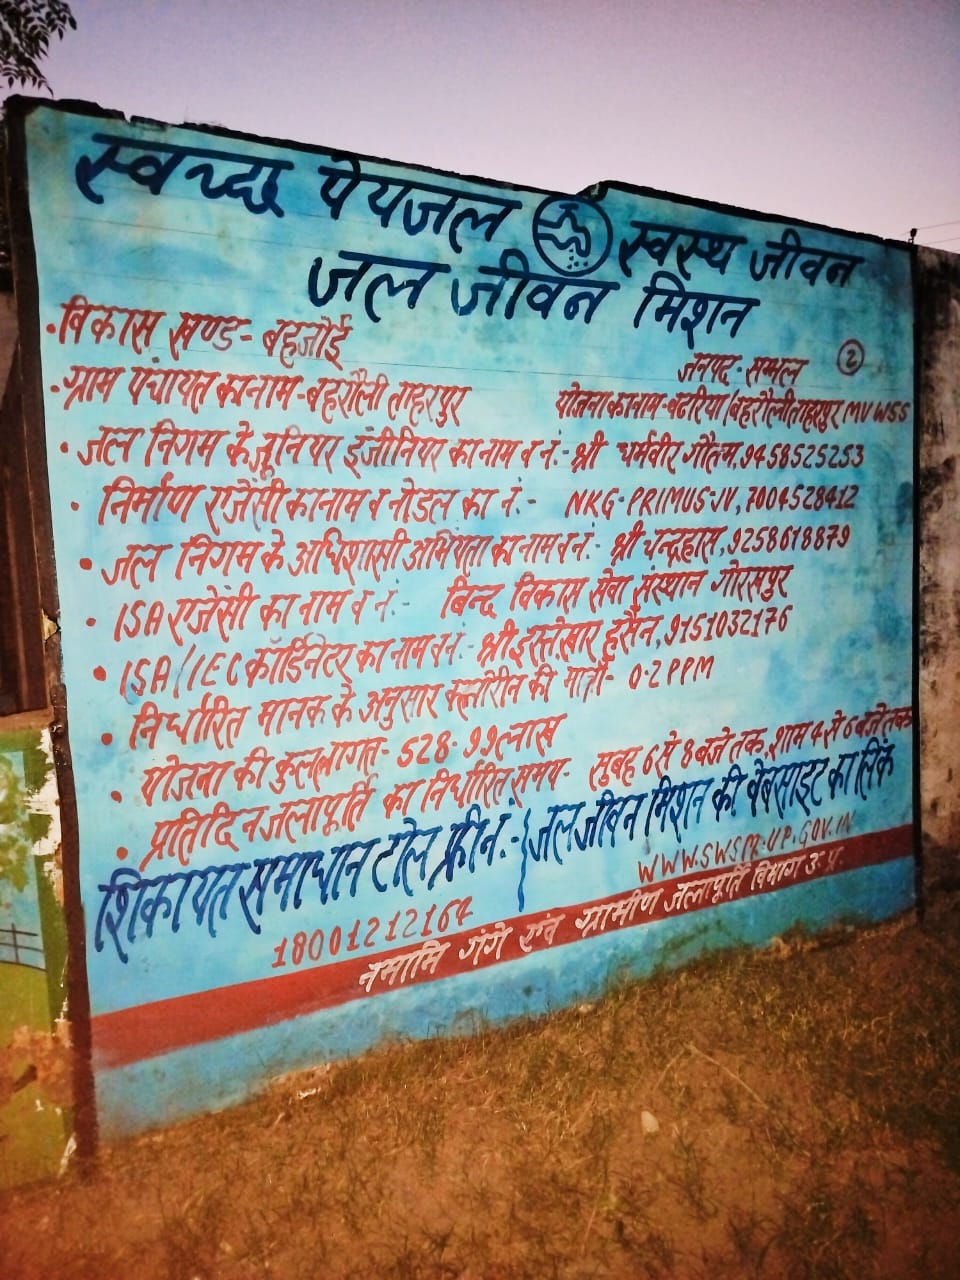 स्वच्छ पेयजल स्वस्थ जीवन
जल जीवन मिशन
• विकास खण्ड - बहजोई
जनपद - सम्भल (2)
• ग्राम पंचायत का नाम - बहरौली ताहरपुर
योजना का नाम - बदरिया/बहरौली ताहरपुर MVWSS
• जल निगम के जूनियर इंजीनियर का नाम व नं:- श्री धर्मवीर गौतम, 9458525253
• निर्माण एजेंसी का नाम व नोडल का नं:- NKG-PRIMUS-JV, 7004528412
• जल निगम के अधिशासी अभियंता का नाम व नं:- श्री चन्द्रहास, 9258618879
• ISA एजेंसी का नाम व नं:- बिन्द विकास सेवा संस्थान गोरखपुर
• ISA/IEC कॉर्डिनेटर का नाम व नं:- श्री इस्तेखार हुसैन, 9151032176
• निर्धारित मानक के अनुसार क्लोरीन की मात्रा - 0.2 PPM
• योजना की कुल लागत - 528.99 लाख
• प्रतिदिन जलापूर्ति का निर्धारित समय - सुबह 6 से 8 बजे तक, शाम 4 से 6 बजे तक
शिकायत समाधान टोल फ्री नं:-
18001212164
जल जीवन मिशन की वेबसाइट का लिंक
WWW.SWSM-UP.GOV.IN
नमामि गंगे एवं ग्रामीण जलापूर्ति विभाग उ.प्र.